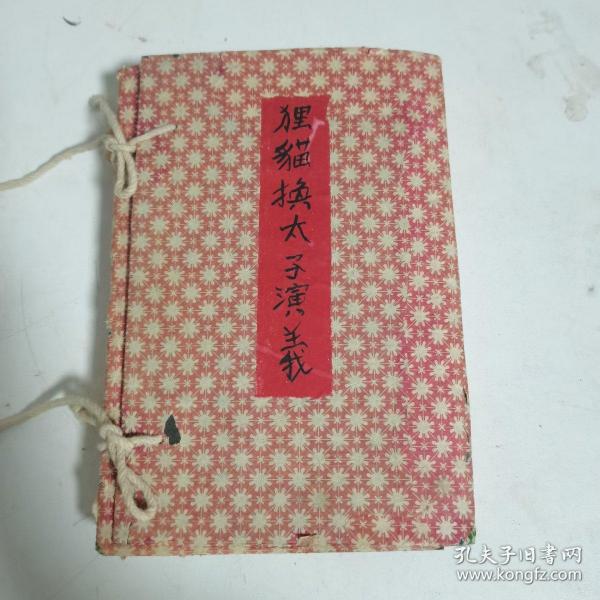 狸貓換太子演義
孔夫子旧书网
www.kongfz.com